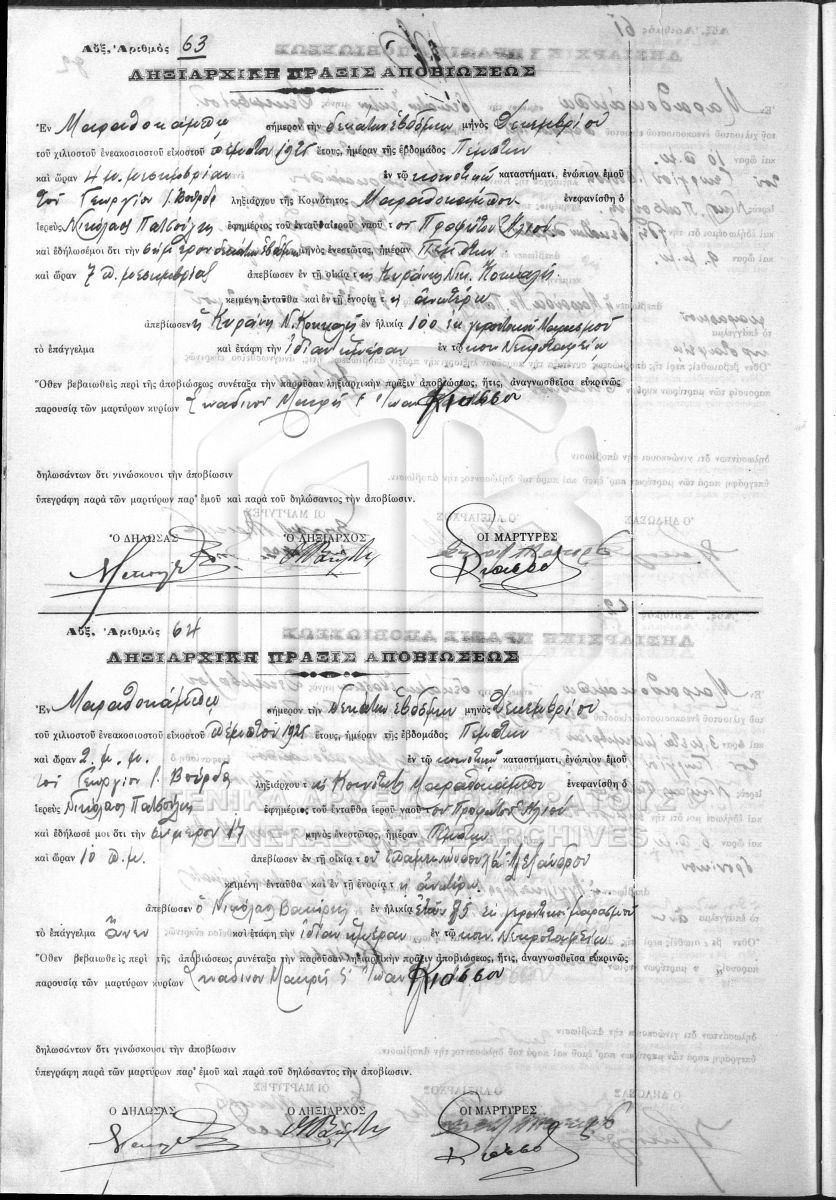 Αὔξ. Ἀριθμὸς 63
ΛΗΞΙΑΡΧΙΚΗ ΠΡΑΞΙΣ ΑΠΟΒΙΩΣΕΩΣ
Ἐν Μαραθοκάμπῳ σήμερον τὴν δεκάτην ἑβδόμην μηνὸς Δεκεμβρίου
τοῦ χιλιοστοῦ ἐνεακοσιοστοῦ εἰκοστοῦ πέμπτου 1925 ἔτους, ἡμέραν τῆς ἑβδομάδος Πέμπτην
καὶ ὥραν 4 μ. μεσημβρίαν ἐν τῷ κοινοτικῷ καταστήματι, ἐνώπιον ἐμοῦ
τοῦ Γεωργίου Ι. Βουρδᾶ ληξιάρχου τῆς Κοινότητος Μαραθοκάμπου ἐνεφανίσθη ὁ
Ἱερεὺς Νικόλαος Πατσούρης ἐφημέριος τοῦ ἐνταῦθα ἱεροῦ ναοῦ τοῦ Προφήτου Ἠλιοῦ
καὶ ἐδήλωσέ μοι ὅτι τὴν σήμερον δεκάτην ἑβδόμην μηνὸς ἐνεστῶτος, ἡμέραν Πέμπτην
καὶ ὥραν 7 π. μεσημβρίας ἀπεβίωσεν ἐν τῇ οἰκίᾳ τῆς Κυράνης Νικ. Κοκκαλῆ
κειμένῃ ἐνταῦθα καὶ ἐν τῇ ἐνορίᾳ τῇ ἀνωτέρω
ἀπεβίωσεν ἡ Κυράνη Ν. Κοκκαλῆ ἐν ἡλικίᾳ 100 ἐκ γεροντικοῦ μαρασμοῦ
τὸ ἐπάγγελμα καὶ ἐτάφη τὴν ἰδίαν ἡμέραν ἐν τῷ κοιν. Νεκροταφείῳ
Ὅθεν βεβαιωθεὶς περὶ τῆς ἀποβιώσεως συνέταξα τὴν παροῦσαν ληξιαρχικὴν πρᾶξιν ἀποβιώσεως, ἥτις, ἀναγνωσθεῖσα εὐκρινῶς
παρουσίᾳ τῶν μαρτύρων κυρίων Σπαδίνου Μακρῆ & Ἰωάν. Κιόσσου
δηλωσάντων ὅτι γινώσκουσι τὴν ἀποβίωσιν
ὑπεγράφη παρὰ τῶν μαρτύρων παρ' ἐμοῦ καὶ παρὰ τοῦ δηλώσαντος τὴν ἀποβίωσιν.
Ὁ ΔΗΛΩΣΑΣ Ὁ ΛΗΞΙΑΡΧΟΣ ΟΙ ΜΑΡΤΥΡΕΣ
Αὔξ. Ἀριθμὸς 64
ΛΗΞΙΑΡΧΙΚΗ ΠΡΑΞΙΣ ΑΠΟΒΙΩΣΕΩΣ
Ἐν Μαραθοκάμπῳ σήμερον τὴν δεκάτην ἑβδόμην μηνὸς Δεκεμβρίου
τοῦ χιλιοστοῦ ἐνεακοσιοστοῦ εἰκοστοῦ πέμπτου 1925 ἔτους, ἡμέραν τῆς ἑβδομάδος Πέμπτην
καὶ ὥραν 2. μ. μ. ἐν τῷ κοινοτικῷ καταστήματι, ἐνώπιον ἐμοῦ
τοῦ Γεωργίου Ι. Βουρδᾶ ληξιάρχου τῆς Κοινότητος Μαραθοκάμπου ἐνεφανίσθη ὁ
Ἱερεὺς Νικόλαος Πατσούρης ἐφημέριος τοῦ ἐνταῦθα ἱεροῦ ναοῦ τοῦ Προφήτου Ἠλιοῦ
καὶ ἐδήλωσέ μοι ὅτι τὴν σήμερον 17 μηνὸς ἐνεστῶτος, ἡμέραν Πέμπτην
καὶ ὥραν 10 π. μ. ἀπεβίωσεν ἐν τῇ οἰκίᾳ τοῦ
κειμένῃ ἐνταῦθα καὶ ἐν τῇ ἐνορίᾳ τῇ ἀνωτέρω.
ἀπεβίωσεν ὁ Νικόλαος Βακίρης ἐν ἡλικίᾳ ἐτῶν 75 ἐκ γεροντικοῦ μαρασμοῦ
τὸ ἐπάγγελμα ἄνευ καὶ ἐτάφη τὴν ἰδίαν ἡμέραν ἐν τῷ κοιν. Νεκροταφείῳ
Ὅθεν βεβαιωθεὶς περὶ τῆς ἀποβιώσεως συνέταξα τὴν παροῦσαν ληξιαρχικὴν πρᾶξιν ἀποβιώσεως, ἥτις, ἀναγνωσθεῖσα εὐκρινῶς
παρουσίᾳ τῶν μαρτύρων κυρίων Σπαδίνου Μακρῆ & Ἰωάν. Κιόσσου
δηλωσάντων ὅτι γινώσκουσι τὴν ἀποβίωσιν
ὑπεγράφη παρὰ τῶν μαρτύρων παρ' ἐμοῦ καὶ παρὰ τοῦ δηλώσαντος τὴν ἀποβίωσιν.
Ὁ ΔΗΛΩΣΑΣ Ὁ ΛΗΞΙΑΡΧΟΣ ΟΙ ΜΑΡΤΥΡΕΣ
ΓΕΝΙΚΑ ΑΡΧΕΙΑ ΤΟΥ ΚΡΑΤΟΥΣ
GENERAL STATE ARCHIVES